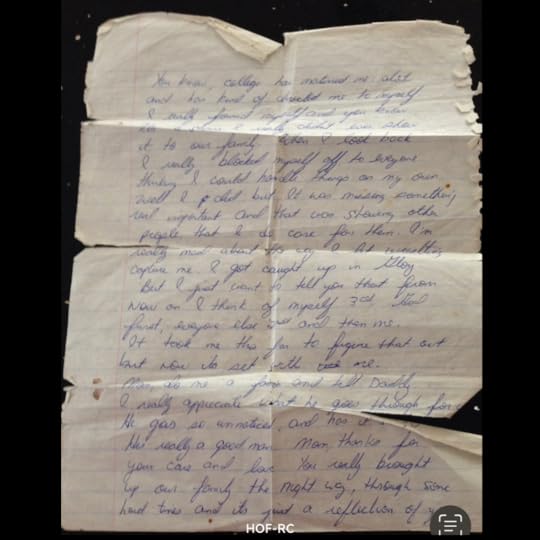 You know, college has matured me alot
and has kind of directed me to myself
I really found myself and you know
I really didn't even show
it to our family. When I look back
I really blocked myself off to everyone
thinking I could handle things on my own
well I did but It was missing something
real important and that was showing other
people that I do care for them. I'm
really mad about the way I let
capture me. I got caught up in Glory
But I just want to tell you that from
now on I think of myself 3rd, God
first, everyone else 2nd and then me.
It took me this far to figure that out
but now its set with me.
Mom, do me a favor and tell Daddy
I really appreciate what he goes through for
He goes so unnoticed, and has it
He's really a good man. Mom, thanks for
your care and love You really brought
up our family the right way, through some
hard times and its just a reflection of
HOF-RC